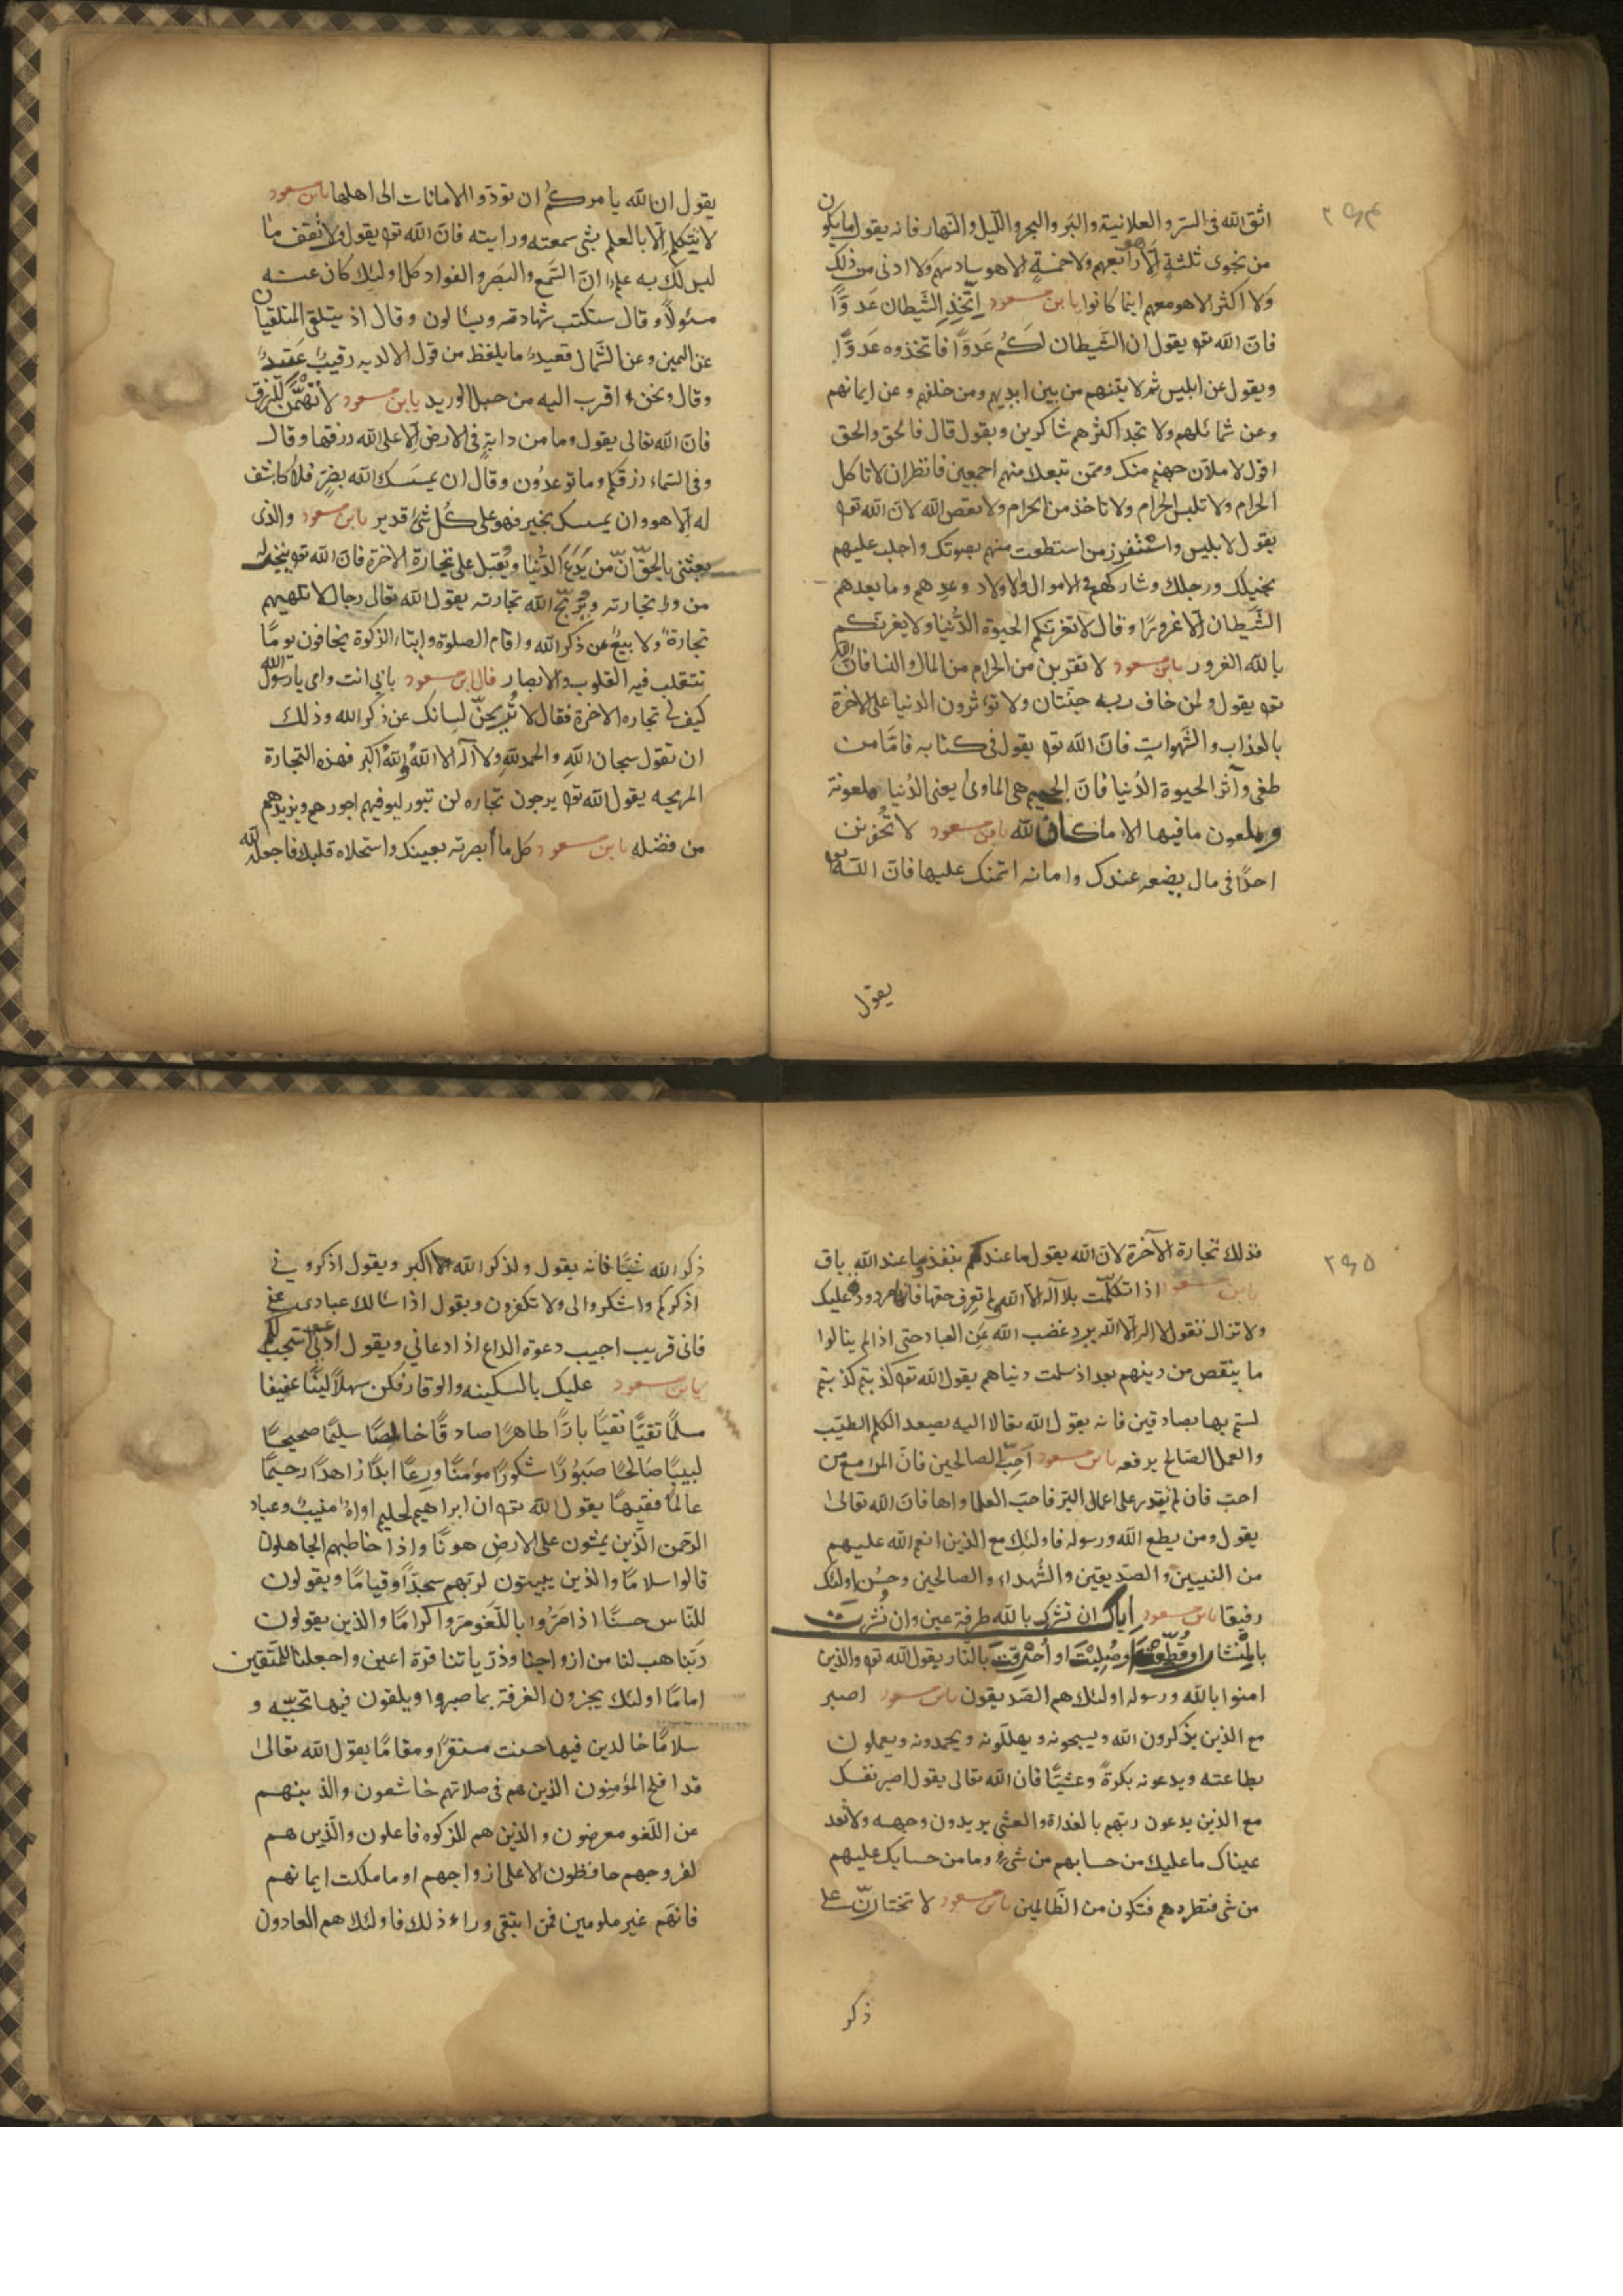 ۲۶۴
اتق الله فی السر و العلانیة و البر و البحر و اللیل و النهار فانه یقول ما یکون
من نجوی ثلثةٍ اِلّا هو رابعهم ولا خمسةٍ الا هو سادسهم ولا ادنی من ذلک
ولا اکثر الا هو معهم اینما کانوا یابن مسعود اِتَّخِذِ الشَیطان عَدوًّا
فانَ الله تع یقول ان الشَیطان لَکُم عَدوًّا فاتخذوه عَدوًّا
ویقول عن ابلیس ثم لاتینهم من بین ایدیهم ومن خلفهم و عن ایمانهم
وعن شمائلهم ولا تجد اکثرهم شاکرین ویقول قال فالحق والحق
اقول لاملان جهنم منک وممن تبعک منهم اجمعین فانظر ان لا تاکل
الحرام ولا تلبس الحرام ولا تاخذ من الحرام ولا تعص الله لان الله تع
یقول لابلیس واستفزز من استطعت منهم بصوتک واجلب علیهم
بخیلک ورجلک وشارکهم فی الاموال والاولاد وعدهم وما یعدهم
الشَیطان اِلّا غرورًا وقال لا تغرنکم الحیوة الدُنیا ولا یغرنکم
بالله الغرور یابن مسعود لا تقربن من الحرام من المال والنسا فان الله
تع یقول ولمن خاف ربه جنّتان ولا تؤثرون الدنیا علی الاخرة
بالعذاب و الشهوات فانَ الله تع یقول فی کتابه فامّا من
طغی وآثر الحیوة الدُنیا فانَ الجحیم هی الماوی یعنی الدُنیا ملعونة
وملعون ما فیها الا ما کان لله یابن مسعود لا تُخونن
احدًا فی مال یضعه عندک و امانه ائتمنک علیها فانَ الله تع
یقول
یقول ان الله یامرکُم ان تودّوا الامانات الی اهلها یابن مسعود
لا تتکلم اِلّا بالعلم بشئ سمعته ورایته فانَ الله تع یقول ولا تقف ما
لیس لک به علم ان السَمع و البَصَر و الفواد کل اولئک کان عنه
مسئولاً وقال ستکتب شهادتهم ویسالون وقال اذ یتلقی المتلقیان
عن الیمین وعن الشمال قعید ما یلفظ من قول الا لدیه رقیب عَتید
وقال ونحن اقرب الیه من حبل الورید یابن مسعود لا تهتَمَّن للرزق
فانَ الله تعالی یقول وما من دابةٍ فی الارض اِلّا علی الله رزقها وقال
وفی السَماء رزقکم وما توعدوُن وقال ان یمسَسک الله بضرٍّ فلا کاشف
له اِلّا هو وان یمسسک بخیر فهو علی کُل شئ قدیر یابن مسعود والذی
بعثنی بالحَقّ انّ من یَدَعَ الدُنیا ویُقبل علی تجارة الاخرة فانَ الله تع یتجر له
من وراء تجارته ویُربّح الله تجارته یقول الله تعالی رجال لا تلهیهم
تجارة ولا بیع عن ذکر الله واقام الصلوة وایتاء الزکوة یخافون یومًا
تتقلب فیه القلوب والابصار قال ابن مسعود بابی انت وامی یا رسول الله
کیف لی تجاره الاخرة فقال لا تُریحنّ لسانک عن ذکر الله وذلک
ان تقول سبحان اللهِ والحمد للهِ ولا اله الا اللهُ واللهُ اکبر فهذه التجارة
المربحه یقول الله تع یرجون تجاره لن تبور لیوفیهم اجورهم ویزیدهم
من فضله یابن مسعود کل ما اَبصرته بعینک واستحلاه قلبک فاجعله لله
۲۶۵
فذلک تجارة الآخرة لان الله یقول ما عندکم ینفذ وما عند الله باق
یابن مسعود اذا تکلّمت بلا آله الا الله ولم تعرف حقها فانه مردود علیک
ولا تزال تقول لا اله اِلّا الله یرد غضب الله عَن العباد حتی اذا لم ینالوا
ما ینقص من دینهم بعد اذ سلمت دنیاهم یقول الله تع کذبتم کذبتم
لستم بها بصادقین فانه یقول الله تعالا الیه یصعد الکلم الطیّب
والعمل الصَالح یرفعه یابن مسعود اَحبّ الصالحین فانَ المرأ مع من
احبّ فان لم یقدر علی اعمال البرّ فاحبّ العلما واهلها فانَ الله تعالیٰ
یقول ومن یطع الله ورسوله فاولئک مع الذین انعم الله علیهم
من النبیین و الصدّیقین والشُهداء و الصالحین وحسُن اولئک
رفیقا یابن مسعود اِیاک ان تشرک بالله طرفة عین وان نُشِرتَ
بالمنشار او قُطّعت او صُلِبْتَ او اُحْرِقتَ بالنّار یقول الله تع والذین
امنوا بالله و رسوله اولئک هم الصّدیقون یابن مسعود اصبر
مع الذین یذکرون الله ویسبحونه ویهلّلونه ویحمدونه ویعملون
بطاعته ویدعونه بکرةً وعشیًّا فان الله تعالی یقول اصبر نفسک
مع الذین یدعون ربّهم بالغداة والعشی یریدون وجهه ولا تعد
عیناک ما علیک من حسابهم من شئٍ وما من حسابک علیهم
من شی فتطردهم فتکون من الظّالمین یابن مسعود لا تختارنّ علی
ذکر
ذکر الله شیئًا فانه یقول ولذکر الله اکبر ویقول اذکرونی
اذکرکم واشکروا لی ولا تکفرون ویقول اذا سالک عبادی عنی
فانی قریب اجیب دعوة الداع اذا دعانی ویقول ادعونی استجب لکم
یابن مسعود علیک بالسکینه والوقار فکن سهلاً لیّنًا عفیفا
مسلمًا تقیًّا نقیًا بارًّا طاهرًا صادقًا خالصًا سلیمًا صحیحًا
لبیبًا صَالحًا صَبوُرًا شکورًا مؤمنًا ورعًا ابدًا زاهدًا رحیمًا
عالمًا فقیهًا یقول الله تع ان ابراهیم لحلیم اواه منیب وعباد
الرّحمن الّذین یمشون علی الارض هونًا واذا خاطبهم الجاهلون
قالوا سلامًا والذین یبیتون لربّهم سجدًا وقیامًا ویقولون
للنّاس حسنًا اذا مَرّوا باللّغو مرّوا کرامًا والذین یقولون
ربّنا هب لنا من ازواجنا وذرّیاتنا قرّة اعین واجعلنا للمتّقین
امامًا اولئک یجزون الغرفة بما صبروا ویلقون فیها تحیّه و
سلامًا خالدین فیها حسنت مستقرًا ومقامًا یقول الله تعالیٰ
قد افلح المؤمنون الذین هم فی صلاتهم خاشعون والذینهم
عن اللّغو معرضون والذین هم للزکوه فاعلون والّذین هم
لفروجهم حافظون الا علی ازواجهم او ما ملکت ایمانهم
فانهَم غیر ملومین فمن ابتغی وراء ذلک فاولئک هم العادون